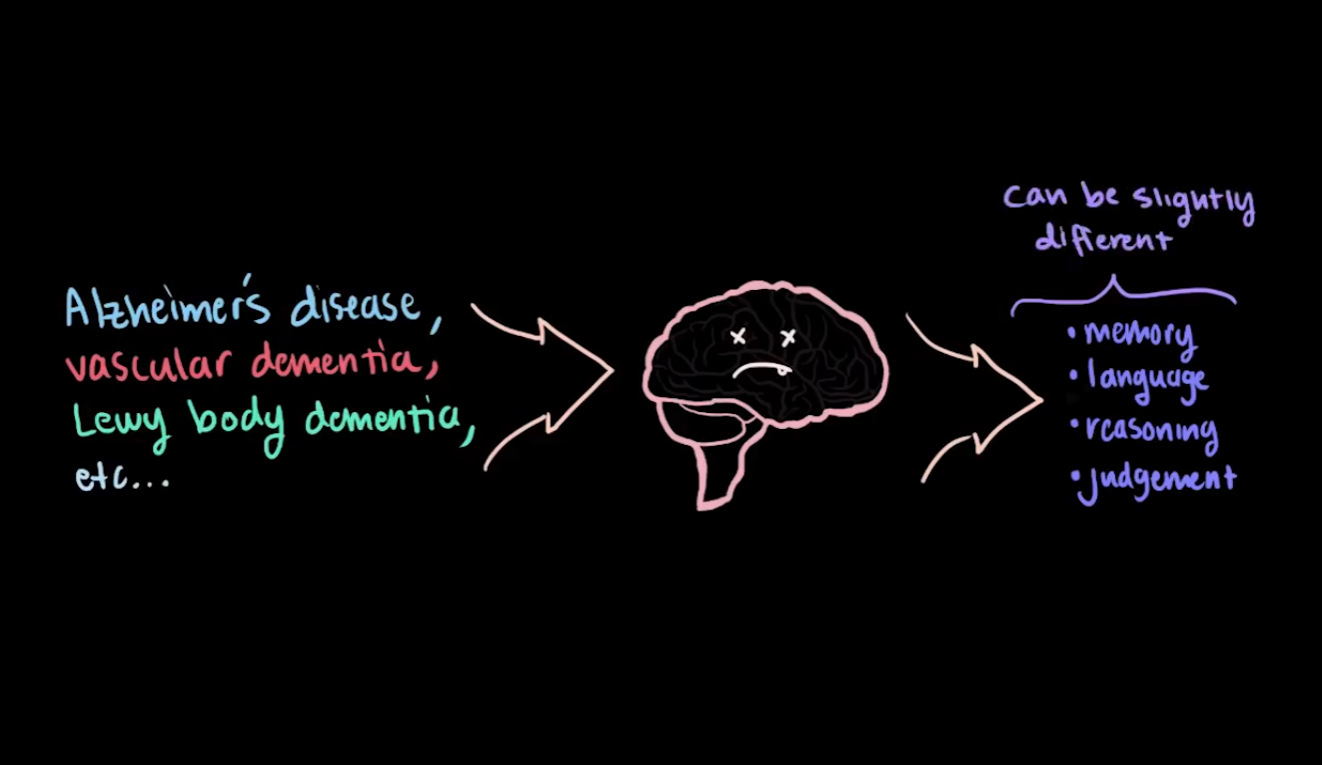 Alzheimer's disease,
vascular dementia,
Lewy body dementia,
etc...
can be slightly
different
• memory
• language
• reasoning
• judgement